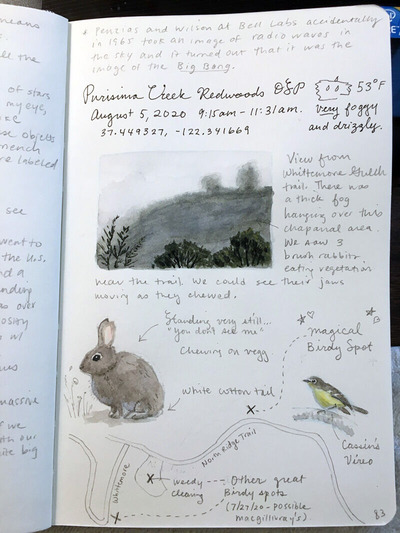 means
ell the
of stars
my eye,
ese objects
re labeled
see
went to
the U.S.
nd a
as over
w/
massive
we
* Penzias and Wilson at Bell Labs accidentally
in 1965 took an image of radio waves in
the sky and it turned out that it was the
image of the Big Bang.
Purisima Creek Redwoods OSP
53°F
August 5, 2020 9:15am - 11:31am.
very foggy
37.449327, -122.341669
and drizzly.
View from
Whittemore Gulch
trail. There was
a thick fog
hanging over this
chaparral area.
We saw 3
brush rabbits
eating vegetation
near the trail. We could see their jaws
moving as they chewed.
Standing very still...
"You don't see me"
Chewing on vegg
White cotton tail
magical
Birdy Spot
X
Cassin's
Vireo
North Ridge Trail
Whittemore
X
weedy
clearing
Other great
Birdy spots
(7/27/20 - possible
MacGillivray's)
X
83